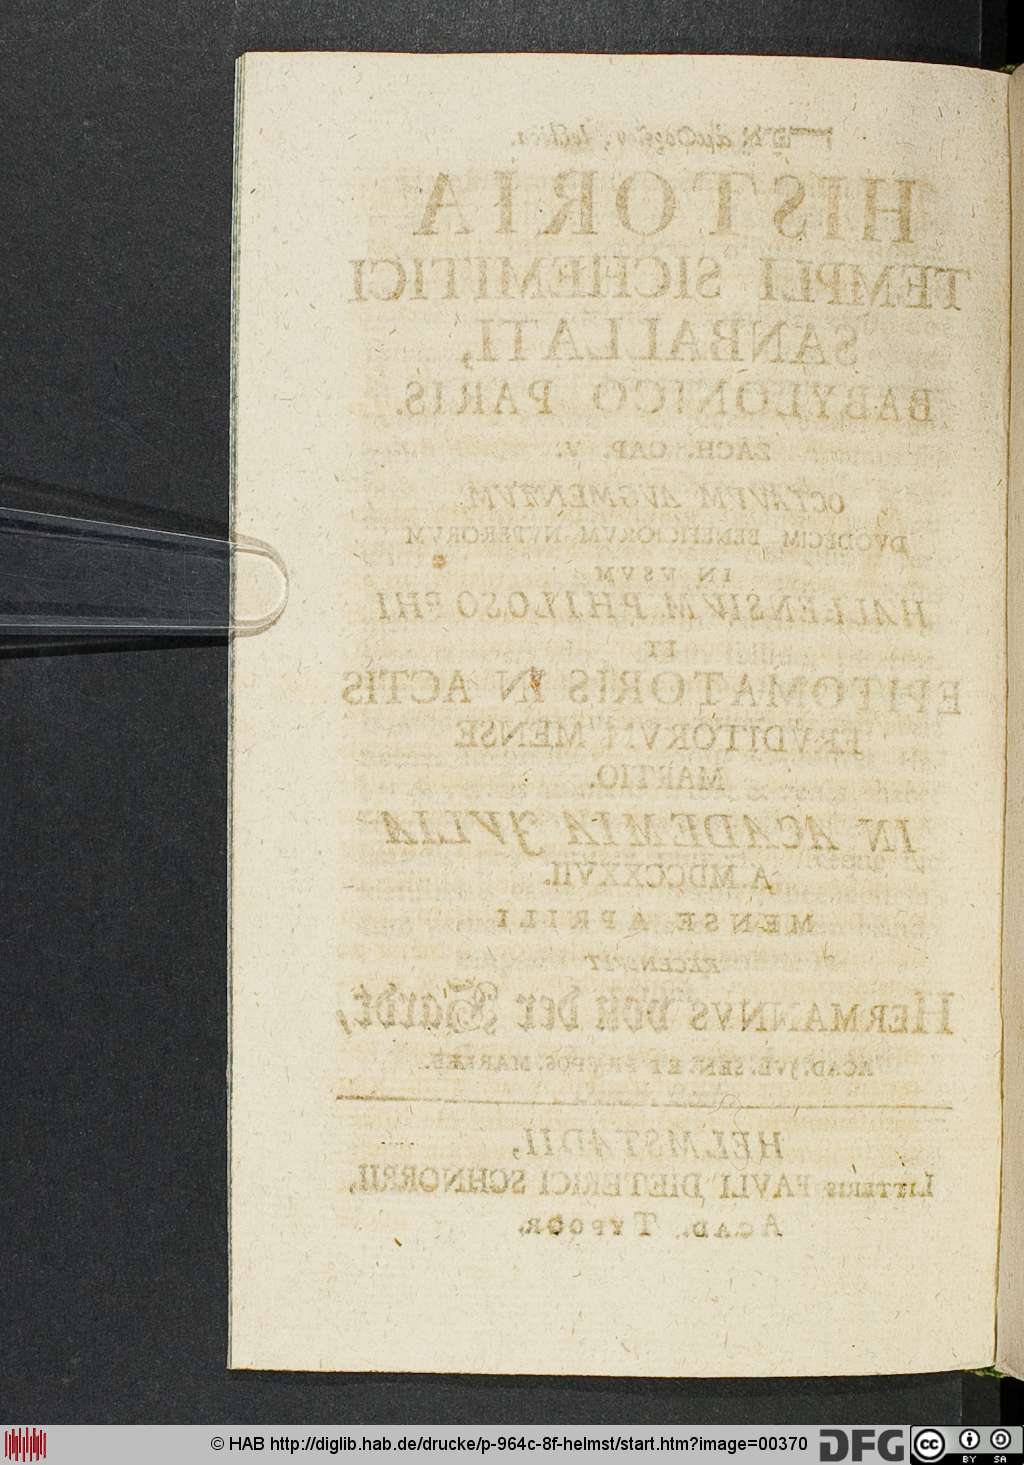 HISTORIA
TEMPLI SICHEMITICI
SANBALLATI,
BABYLONICO PARIS.
ZACH. CAP. V.
OCTAVVM AVGMENTVM.
DVODECIM BENEFICIORVM NVPERORVM
IN VSVM
HALLENSIVM PHILOSOPHI
ET
EPITOMATORIS IN ACTIS
ERVDITORVM MENSE
MARTIO.
IN ACADEMIA JVLIA
A. MDCCXXVII.
MENSE APRILI
RECENSVIT
HERMANNVS von der Hardt,
ACAD. JVL. SEN. ET PRÆPOS. MARIÆB.
HELMSTADII,
LITTERIS PAVLI DIETERICI SCHNORRII,
ACAD. TYPOGR.
© HAB http://diglib.hab.de/drucke/p-964c-8f-helmst/start.htm?image=00370
DFG
cc
BY SA